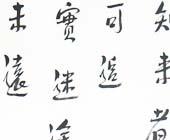 知来者
可追
實迷途
未遠